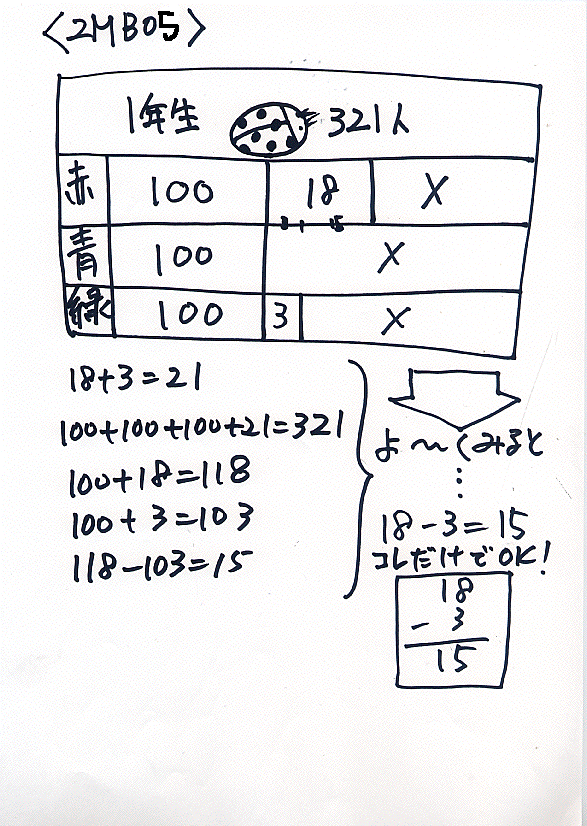 〈2MB05〉
1年生 321人
赤 100 18 X
3 1 15
青 100 X
緑 100 3 X
18+3=21
100+100+100+21=321
100+18=118
100+3=103
118-103=15
よ〜くみると
⋮
18-3=15
コレだけでOK!
18
- 3
15